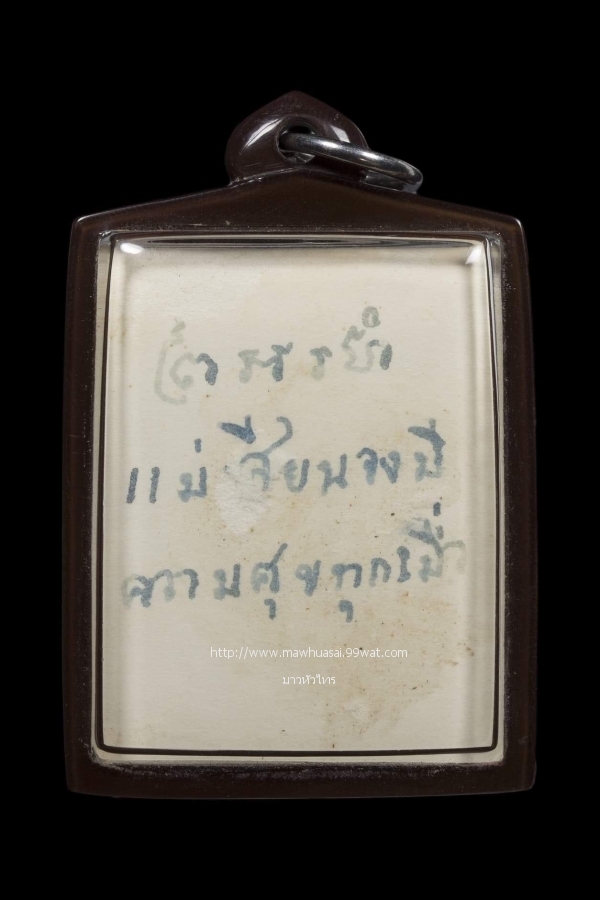 แม่เจียนจงมี
ความศุขทุกเมื่อ
http://www.mawhuasai.99wat.com
บาวหัวไทร